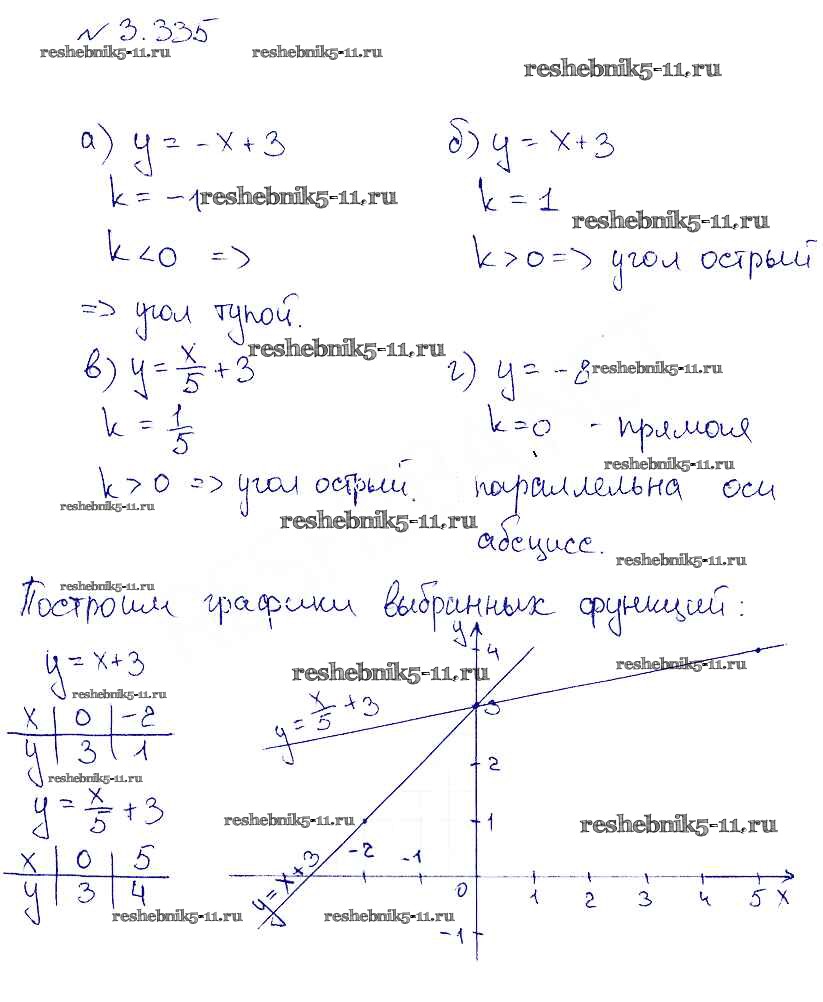 № 3.335
reshebnik5-11.ru reshebnik5-11.ru
reshebnik5-11.ru
а) y = -x + 3 б) y = x + 3
k = -1 reshebnik5-11.ru k = 1
reshebnik5-11.ru
k < 0 => k > 0 => угол острый
=> угол тупой.
reshebnik5-11.ru
в) y = x/5 + 3 г) y = -8 reshebnik5-11.ru
k = 1/5 k = 0 - прямая
reshebnik5-11.ru
k > 0 => угол острый. параллельна оси
reshebnik5-11.ru
reshebnik5-11.ru абсцисс.
reshebnik5-11.ru
reshebnik5-11.ru
Построим графики выбранных функций:
y = x + 3
reshebnik5-11.ru
x 0 -2
y 3 1
reshebnik5-11.ru
y = x/5 + 3
x 0 5
y 3 4
reshebnik5-11.ru
y
4
reshebnik5-11.ru reshebnik5-11.ru
y = x/5 + 3
3
2
reshebnik5-11.ru 1 reshebnik5-11.ru
-2 -1
y = x + 3
0 1 2 3 4 5 x
reshebnik5-11.ru
-1